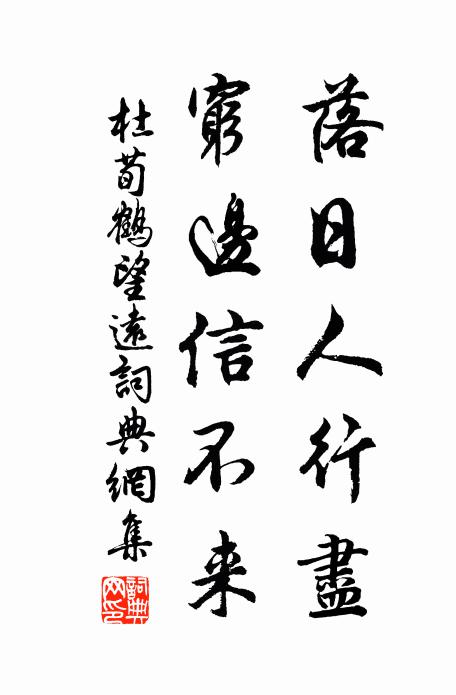 落日人行盡
窮邊信不来
杜荀鶴望遠詞典網集
詞典网印